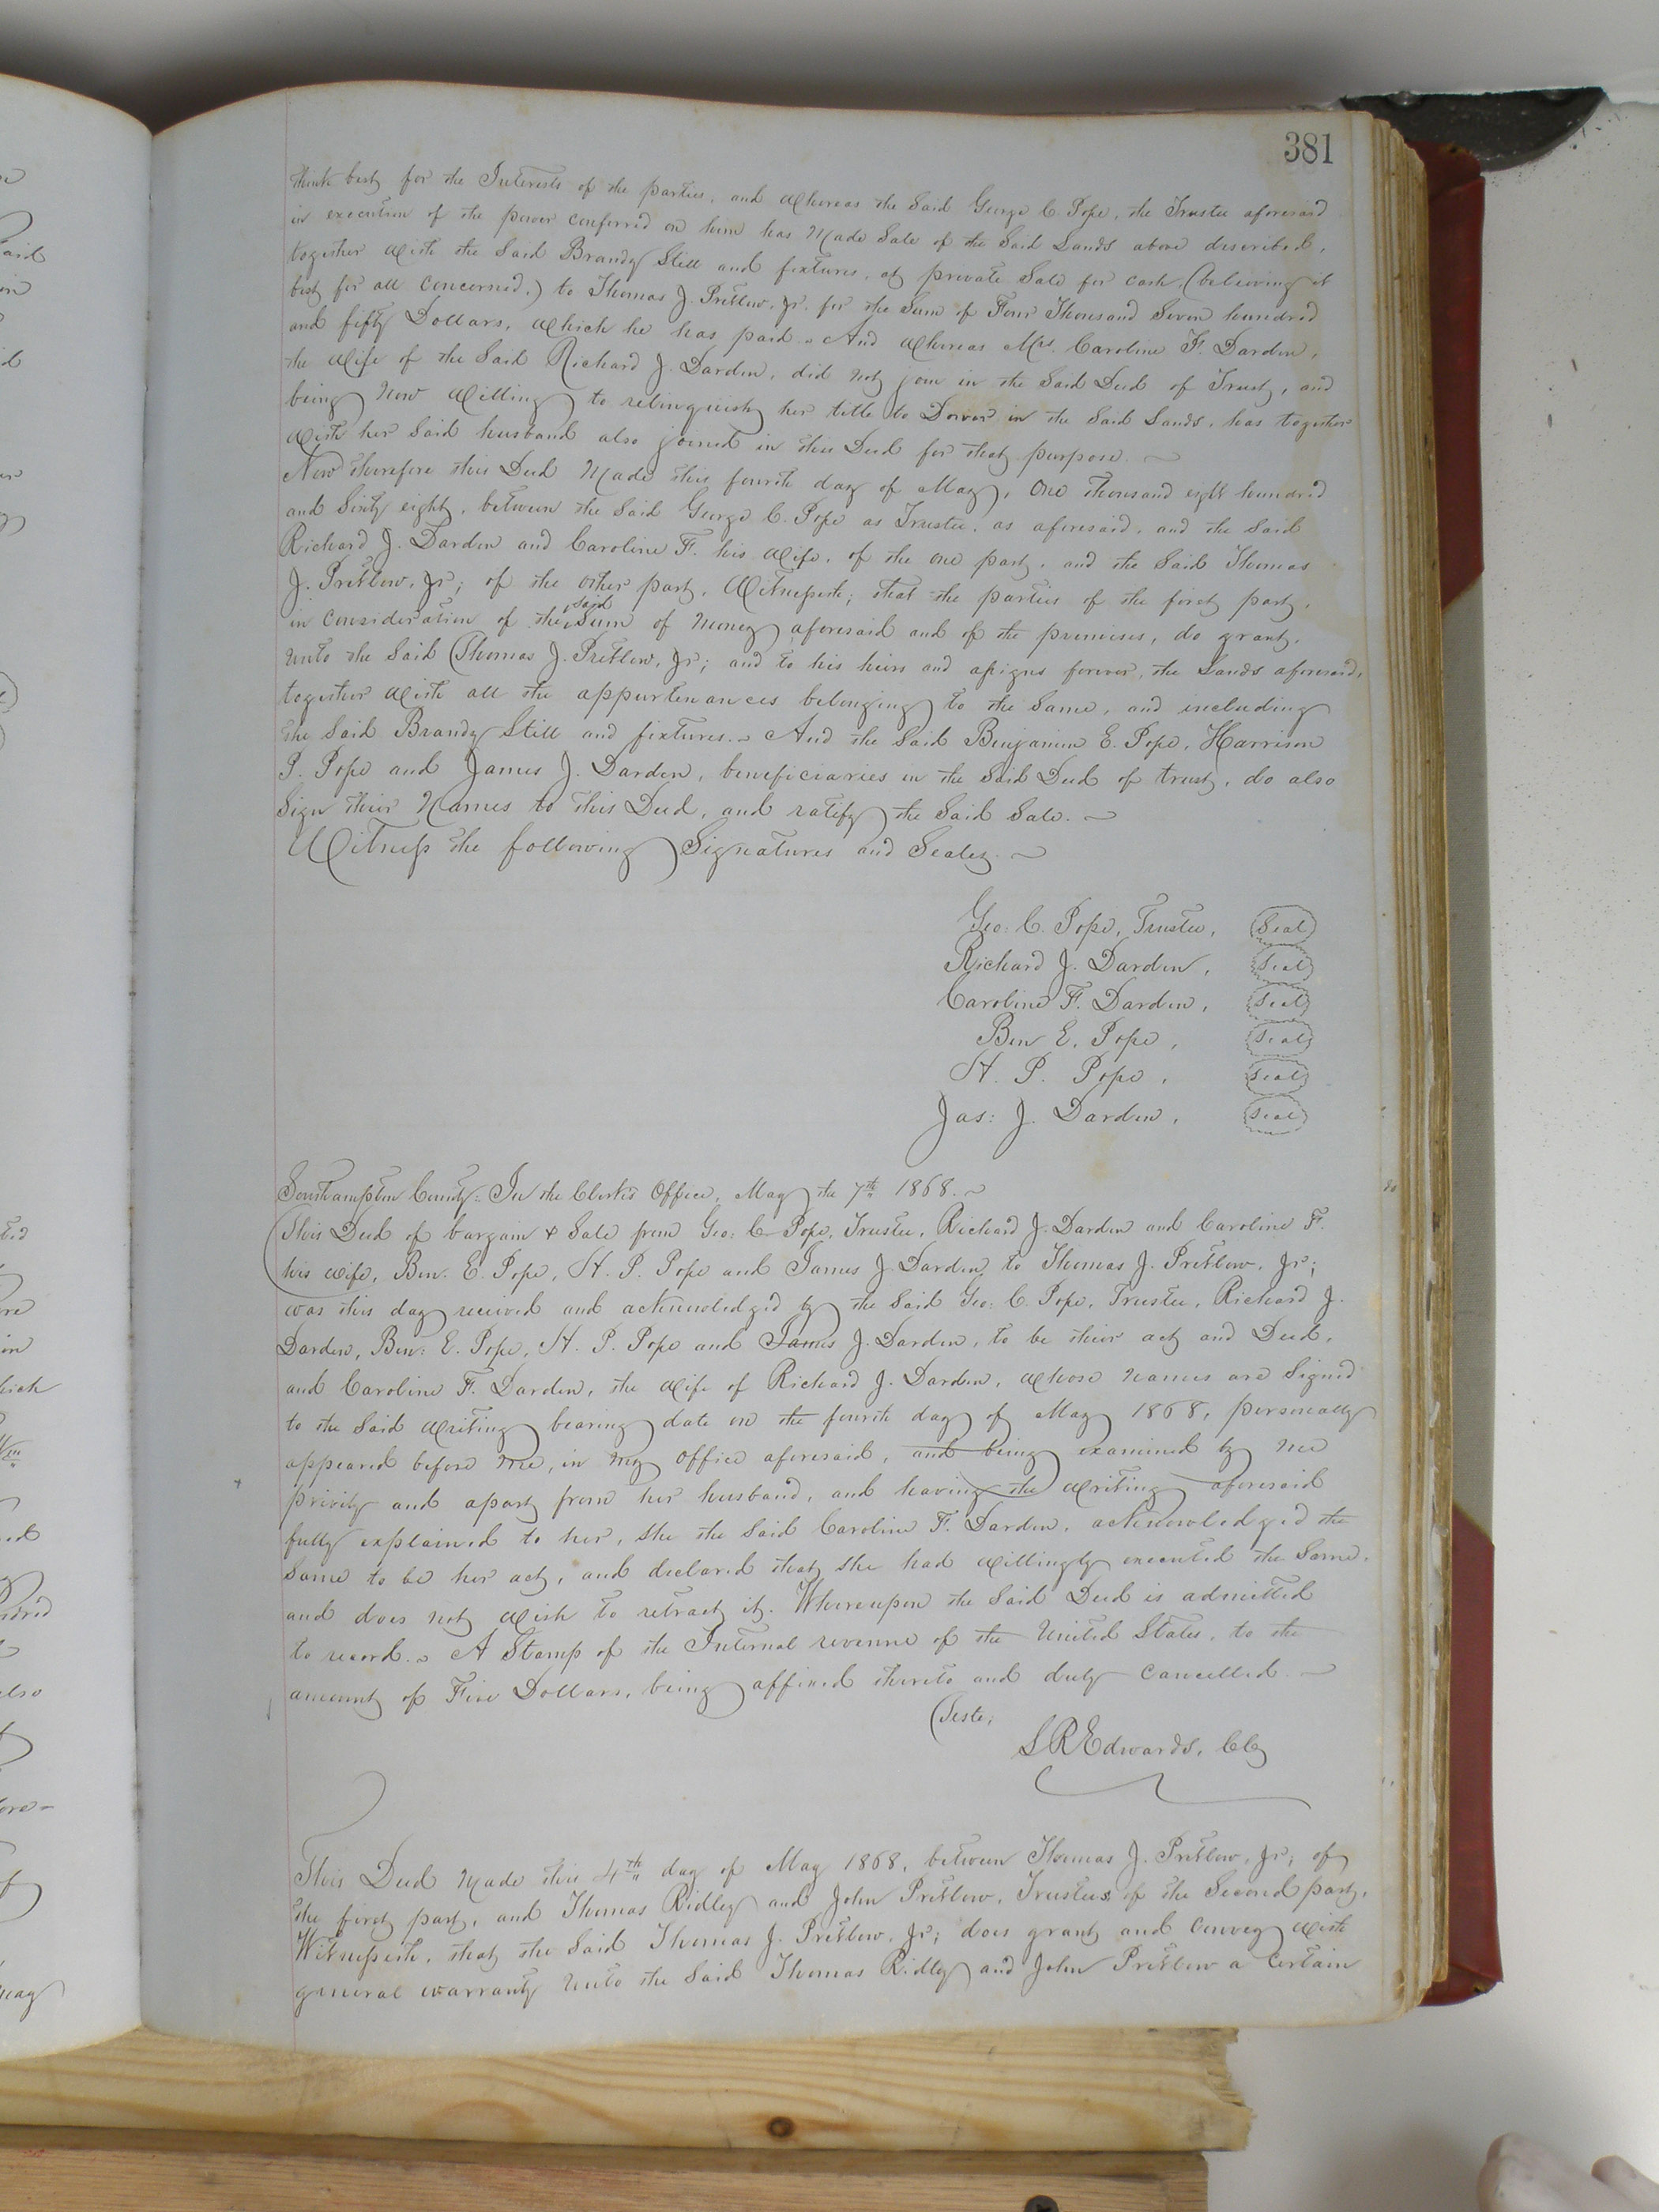 381
think best for the Interests of the parties, and Whereas the Said George C. Pope, the Trustee aforesaid
in execution of the power conferred on him has Made Sale of the Said Lands above described,
together With the Said Brandy Still and fixtures, at private Sale for cash (believing it
best for all concerned,) to Thomas J. Pretlow, Jr. for the Sum of Four Thousand Seven hundred
and fifty Dollars, Which he has paid. And Whereas Mrs. Caroline F. Darden,
the Wife of the Said Richard J. Darden, did not join in the Said Deed of Trust, and
being Now Willing to relinquish her title to Dower in the Said Lands, has together
With her Said husband also joined in this Deed for that purpose.
Now therefore this Deed Made this fourth day of May, One thousand eight hundred
and Sixty eight, between the Said George C. Pope as Trustee, as aforesaid, and the Said
Richard J. Darden and Caroline F. his Wife, of the one part, and the Said Thomas
J. Pretlow, Jr; of the other part, Witnesseth; that the parties of the first part,
in consideration of the said Sum of Money aforesaid and of the premises, do grant,
Unto the Said Thomas J. Pretlow, Jr; and to his heirs and assigns forever, the Lands aforesaid,
together With all the appurtenances belonging to the Same, and including
the Said Brandy Still and fixtures. And the Said Benjamin E. Pope, Harrison
P. Pope and James J. Darden, beneficiaries in the Said Deed of trust, do also
Sign their Names to this Deed, and ratify the Said Sale.
Witness the following Signatures and Seals.
Geo: C. Pope, Trustee, Seal
Richard J. Darden, Seal
Caroline F. Darden, Seal
Ben E. Pope, Seal
H. P. Pope, Seal
Jas: J. Darden, Seal
Southampton County: In the Clerk's Office, May the 7th 1868.
This Deed of bargain & Sale from Geo: C. Pope, Trustee, Richard J. Darden and Caroline F.
his Wife, Ben. E. Pope, H. P. Pope and James J. Darden, to Thomas J. Pretlow, Jr;
was this day received and acknowledged by the Said Geo: C. Pope, Trustee, Richard J.
Darden, Ben: E. Pope, H. P. Pope and James J. Darden, to be their act and Deed,
and Caroline F. Darden, the Wife of Richard J. Darden, Whose names are Signed
to the Said Writing bearing date on the fourth day of May 1868, personally
appeared before Me, in My office aforesaid, and being examined by Me
privily and apart from her husband, and having the Writing aforesaid
fully explained to her, She the Said Caroline F. Darden, acknowledged the
Same to be her act, and declared that She had Willingly executed the Same,
and does not Wish to retract it. Whereupon the Said Deed is admitted
to record. A Stamp of the Internal revenue of the United States, to the
amount of Five Dollars, being affixed thereto and duly cancelled.
Teste;
L R Edwards, Clk
This Deed Made this 4th day of May 1868, between Thomas J. Pretlow, Jr; of
the first part, and Thomas Ridley and John Pretlow, Trustees of the Second part,
Witnesseth, that the Said Thomas J. Pretlow, Jr; does grant and Convey With
general warranty Unto the Said Thomas Ridley and John Pretlow a Certain